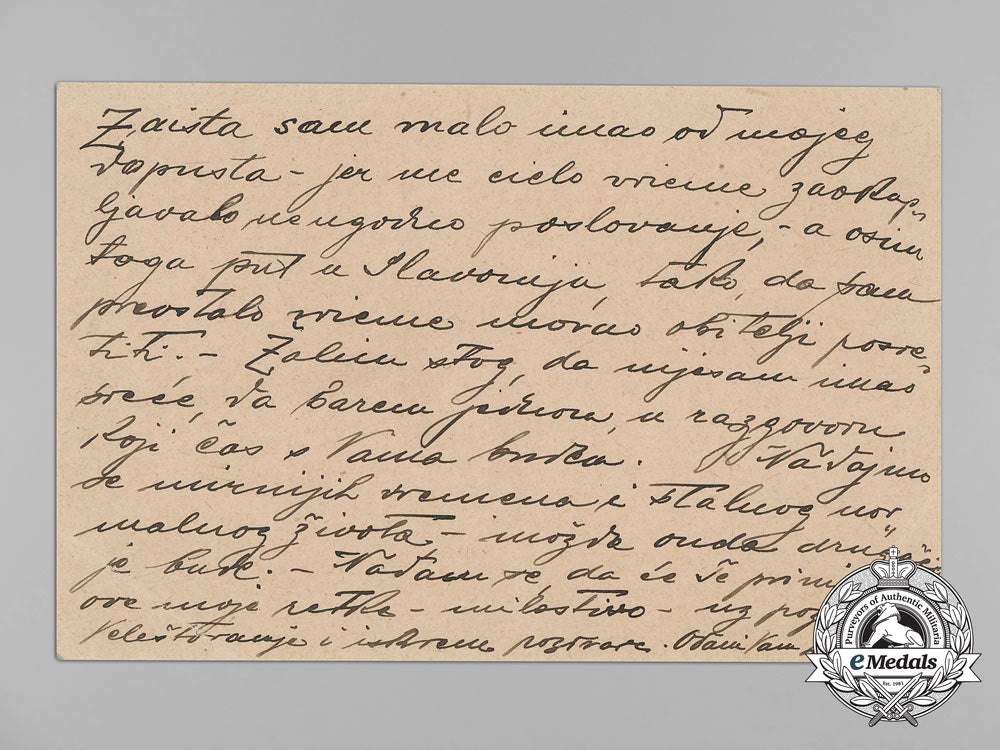 Zaista sam malo imao od mojeg
dopusta - jer me cielo vrieme zaokup-
ljavalo neugodno poslovanje, - a osim
toga put u Slavoniju, tako, da sam
preostalo vrieme morao obitelji posve-
titi. - Žalim stog, da nijesam imao
sreće, da barem jednom, u razgovoru
koji čas s Vama budem. Nadajmo
se mirnijih vremena i stalnog nor
malnog života - možda onda drugačije
je bude. - Nadam se, da će te
ove moje retke - milostivo - uz
veleštovanje i iskrene pozdrave. Odani Vam
Purveyors of Authentic Militaria
eMedals
Est. 1981